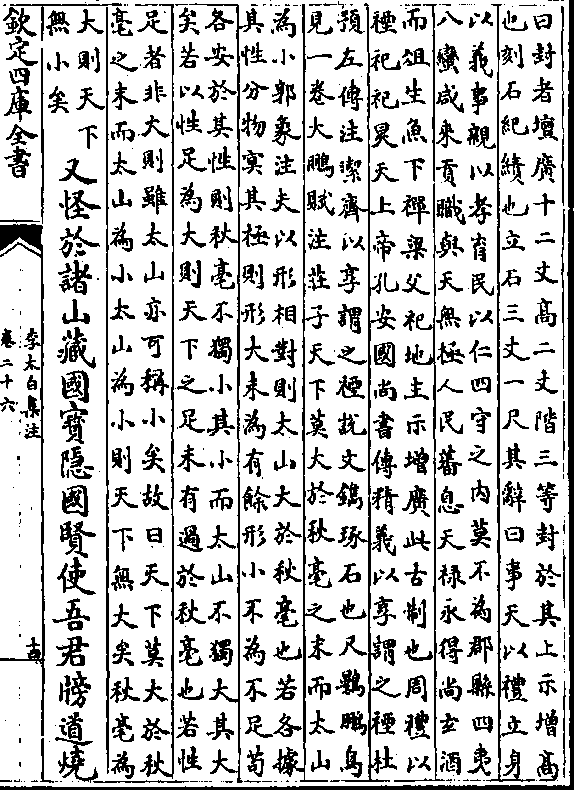 曰封者壇廣十二丈高二丈階三等封於其上示增高
也刻石紀績也立石三丈一尺其辭曰事天以禮立身
以義事親以孝育民以仁四守之内莫不為郡縣四夷
八蠻咸來貢職與天無極人民蕃息天禄永得尚玄酒
而俎生魚下禪梁父祀地主示增廣此古制也周禮以
禋祀祀昊天上帝孔安國尚書傳精義以享謂之禋杜
預左傳注潔齊以享謂之禋說文鐫琢石也尺鷃鵬鳥
見一卷大鵬賦注莊子天下莫大於秋毫之末而太山
為小郭象注夫以形相對則太山大於秋毫也若各據
其性分物冥其極則形大未為有餘形小不為不足苟
各安於其性則秋毫不獨小其小而太山不獨大其大
矣若以性足為大則天下之足未有過於秋毫也若性
足者非大則雖太山亦可稱小矣故曰天下莫大於秋
毫之末而太山為小太山為小則天下無大矣秋毫為
大則天下
無小矣
又怪於諸山藏國寶隱國賢使吾君牓道燒
欽定四庫全書
李太白集注
卷二十六
十四